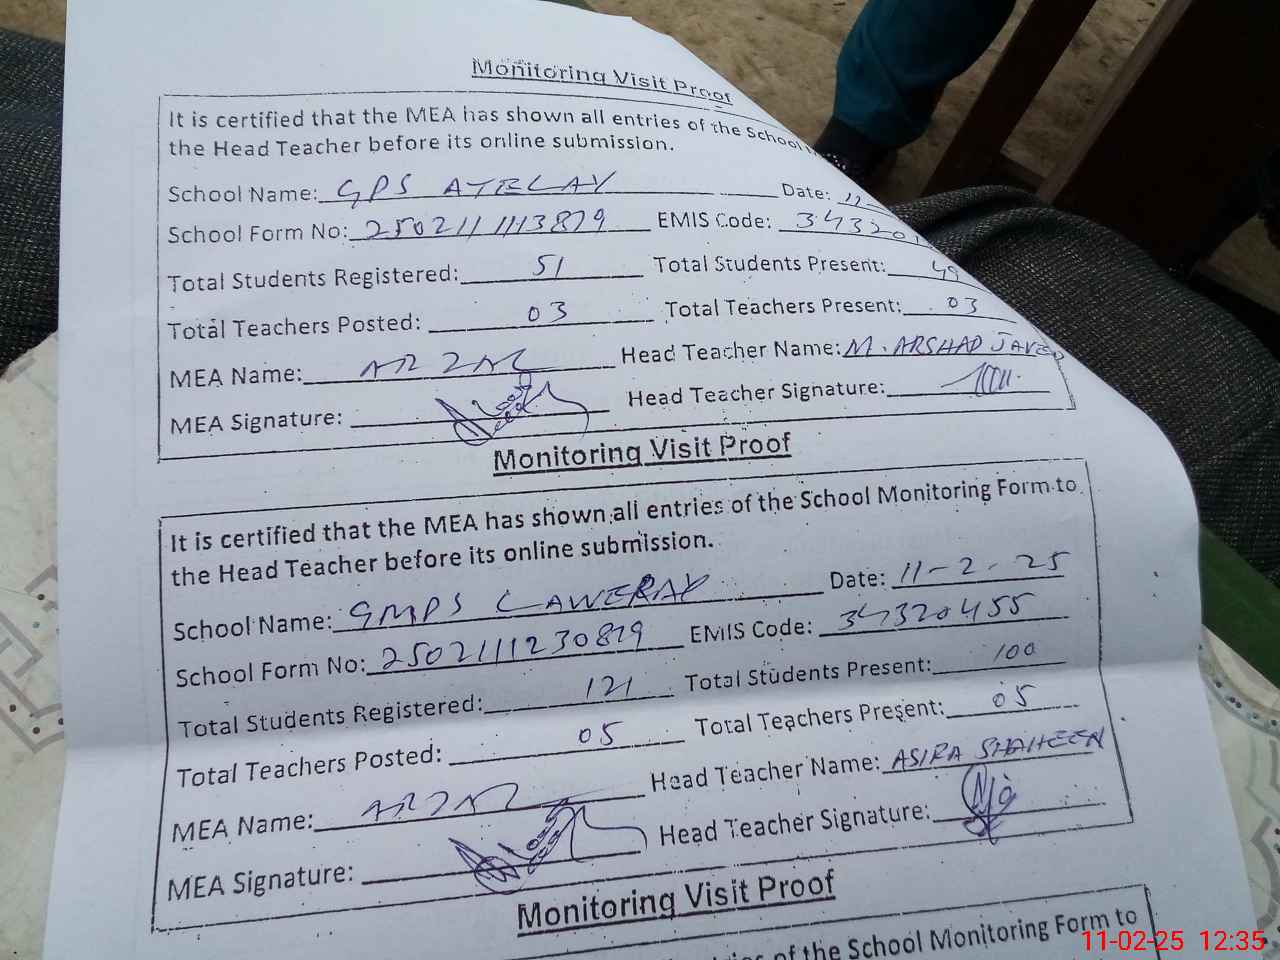 Monitoring Visit Proof
It is certified that the MEA has shown all entries of the School
the Head Teacher before its online submission.
School Name: GPS AYELAY Date: 11-
School Form No: 2502111113879 EMIS Code: 343201
Total Students Registered: 51 Total Students Present: 49
Total Teachers Posted: 03 Total Teachers Present: 03
MEA Name: Head Teacher Name: M. ARSHAD JAVED
MEA Signature: Head Teacher Signature:
Monitoring Visit Proof
It is certified that the MEA has shown all entries of the School Monitoring Form to
the Head Teacher before its online submission.
School Name: GMPS LAWERAY Date: 11-2-25
School Form No: 2502111230879 EMIS Code: 34320455
Total Students Registered: 121 Total Students Present: 100
Total Teachers Posted: 05 Total Teachers Present: 05
MEA Name: Head Teacher Name: ASIRA SHAHEEN
MEA Signature: Head Teacher Signature:
Monitoring Visit Proof
entries of the School Monitoring Form to
11-02-25 12:35